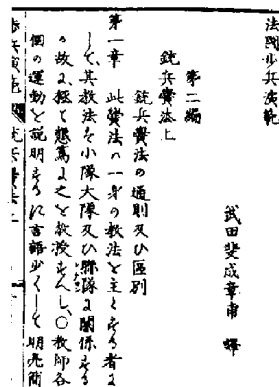 法國歩兵演範
武田斐成章甫 譯
第二編
銃兵費法上
銃兵費法の通則及ひ區別
第一章 此費法ハ一身の教法を主とする者ニ
して其教法を小隊大隊及ひ聯隊ニ關係する
故ニ極て懇篤ニ之を教授すへし〇教師各
個の運動を説明するに言語少くして明亮簡